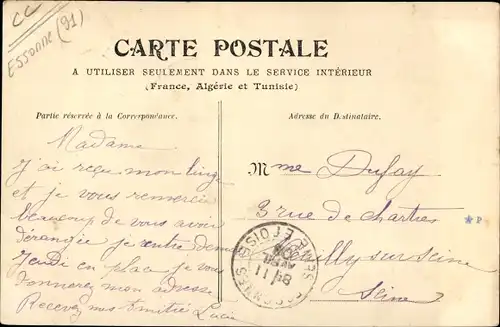 CC
Essonne (91)
CARTE POSTALE
A UTILISER SEULEMENT DANS LE SERVICE INTÉRIEUR
(France, Algérie et Tunisie)
Partie réservée à la Correspondance.
Adresse du Destinataire.
Madame
J'ai reçu mon linge
et je vous remercie
beaucoup de vous avoir
dérangée je rentre
Jeudi en place je vous
donnerez mon adresse
Recevez mes Amitié Lucie
Mme Dufay
3 rue de Chartres
Neuilly sur Seine
Seine